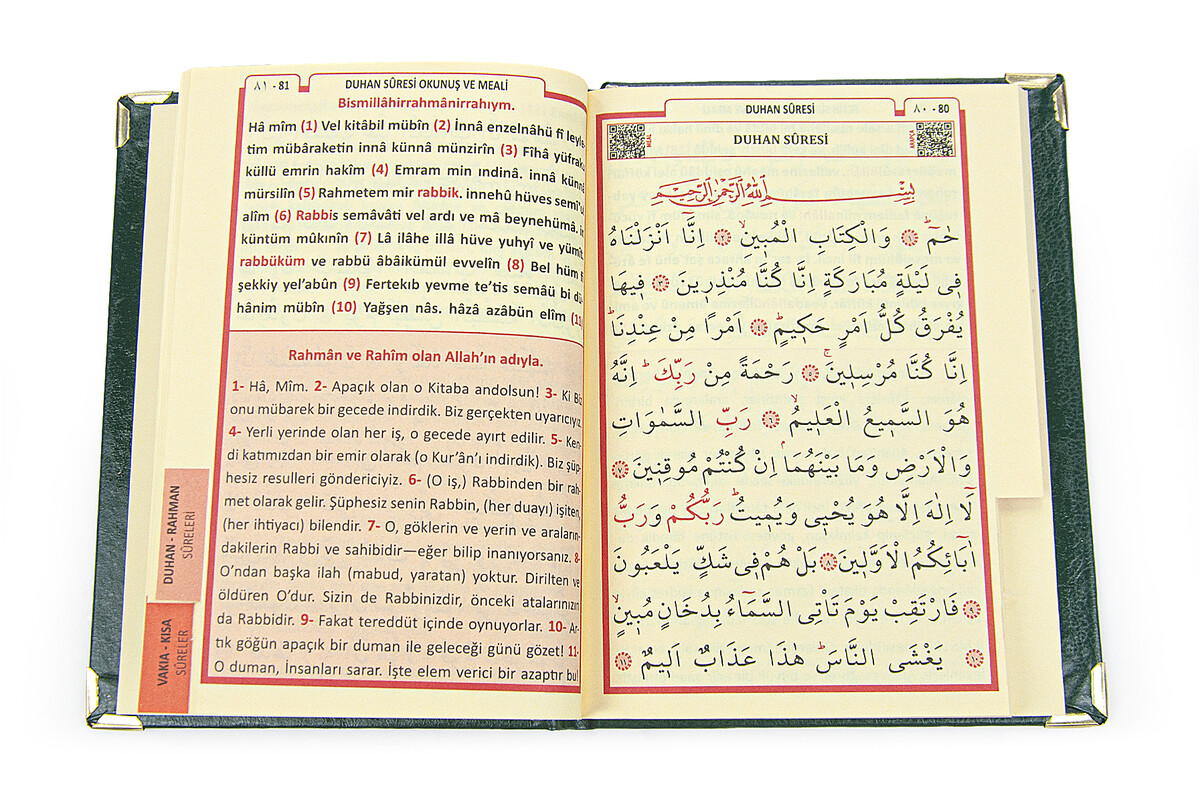 ٨١ - 81
DUHAN SÛRESİ OKUNUŞ VE MEALİ
Bismillâhirrahmânirrahıym.
Hâ mîm (1) Vel kitâbil mübîn (2) İnnâ enzelnâhü fî leyle
tim mübâraketin innâ künnâ münzirîn (3) Fîhâ yüfraku
küllü emrin hakîm (4) Emram min ındinâ. innâ künnâ
mürsilîn (5) Rahmetem mir rabbik. innehû hüves semî'ul
alîm (6) Rabbis semâvâti vel ardı ve mâ beynehümâ. in
küntüm mûkınîn (7) Lâ ilâhe illâ hüve yuhyî ve yümît.
rabbüküm ve rabbü âbâikümül evvelîn (8) Bel hüm fî
şekkiy yel'abûn (9) Fertekıb yevme te'tis semâü bi dü-
hânim mübîn (10) Yağşen nâs. hâzâ azâbün elîm (11)
Rahmân ve Rahîm olan Allah'ın adıyla.
1- Hâ, Mîm. 2- Apaçık olan o Kitaba andolsun! 3- Ki Biz
onu mübarek bir gecede indirdik. Biz gerçekten uyarıcıyız.
4- Yerli yerinde olan her iş, o gecede ayırt edilir. 5- Ken-
di katımızdan bir emir olarak (o Kur'ân'ı indirdik). Biz şüp-
hesiz resulleri göndericiyiz. 6- (O iş,) Rabbinden bir rah-
met olarak gelir. Şüphesiz senin Rabbin, (her duayı) işiten,
(her ihtiyacı) bilendir. 7- O, göklerin ve yerin ve araların-
dakilerin Rabbi ve sahibidir—eğer bilip inanıyorsanız. 8-
O'ndan başka ilah (mabud, yaratan) yoktur. Dirilten ve
öldüren O'dur. Sizin de Rabbinizdir, önceki atalarınızın
da Rabbidir. 9- Fakat tereddüt içinde oynuyorlar. 10- Ar-
tık göğün apaçık bir duman ile geleceği günü gözet! 11-
O duman, İnsanları sarar. İşte elem verici bir azaptır bu!
DUHAN - RAHMAN
SÛRELERİ
VAKIA - KISA
SÛRELER
DUHAN SÛRESİ
٨٠ - 80
MEAL
DUHAN SÛRESİ
ARAPÇA
بِسْمِ اللّٰهِ الرَّحْمٰنِ الرَّحِيمِ
حٰمٓۜ ﴿١﴾ وَالْكِتَابِ الْمُبٖينِۙ ﴿٢﴾ اِنَّٓا اَنْزَلْنَاهُ
فٖى لَيْلَةٍ مُبَارَكَةٍ اِنَّا كُنَّا مُنْذِرٖينَ ﴿٣﴾ فٖيهَا
يُفْرَقُ كُلُّ اَمْرٍ حَكٖيمٍۙ ﴿٤﴾ اَمْرًا مِنْ عِنْدِنَاۜ
اِنَّا كُنَّا مُرْسِلٖينَۚ ﴿٥﴾ رَحْمَةً مِنْ رَبِّكَۜ اِنَّهُ
هُوَ السَّمٖيعُ الْعَلٖيمُۙ ﴿٦﴾ رَبِّ السَّمٰوَاتِ
وَالْاَرْضِ وَمَا بَيْنَهُمَاۢ اِنْ كُنْتُمْ مُوقِنٖينَ ﴿٧﴾
لَٓا اِلٰهَ اِلَّا هُوَ يُحْيٖى وَيُمٖيتُۜ رَبُّكُمْ وَرَبُّ
اٰبَٓائِكُمُ الْاَوَّلٖينَ ﴿٨﴾ بَلْ هُمْ فٖى شَكٍّ يَلْعَبُونَ
﴿٩﴾ فَارْتَقِبْ يَوْمَ تَاْتِى السَّمَٓاءُ بِدُخَانٍ مُبٖينٍۙ
﴿١٠﴾ يَغْشَى النَّاسَۜ هٰذَا عَذَابٌ اَلٖيمٌ ﴿١١﴾